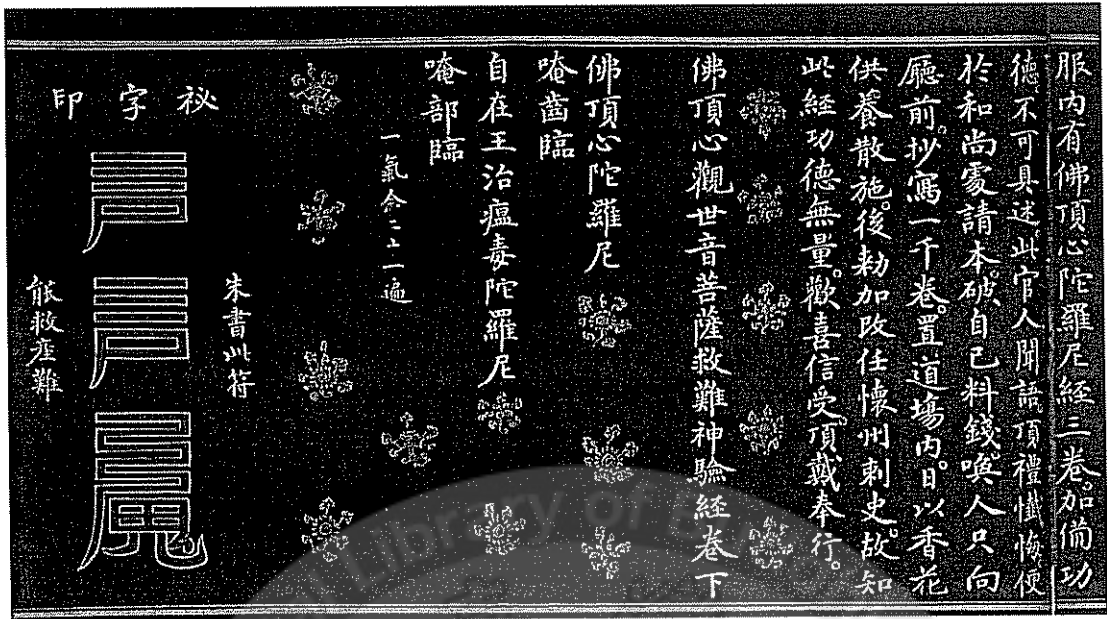 服内有佛頂心陀羅尼經三卷。加備功
德不可具述。此官人聞語頂禮懺悔便
於和尚處請本。破自己料錢。喚人只向
廳前。抄寫一千卷。置道場内。日以香花
供養散施。後勅加改任懷州刺史。故知
此經功德無量。歡喜信受。頂戴奉行。
佛頂心觀世音菩薩救難神驗經卷下
佛頂心陀羅尼
唵齒臨
自在王治瘟毒陀羅尼
唵部臨
一氣念二十一遍
祕字印
朱書此符
能救産難
Library of